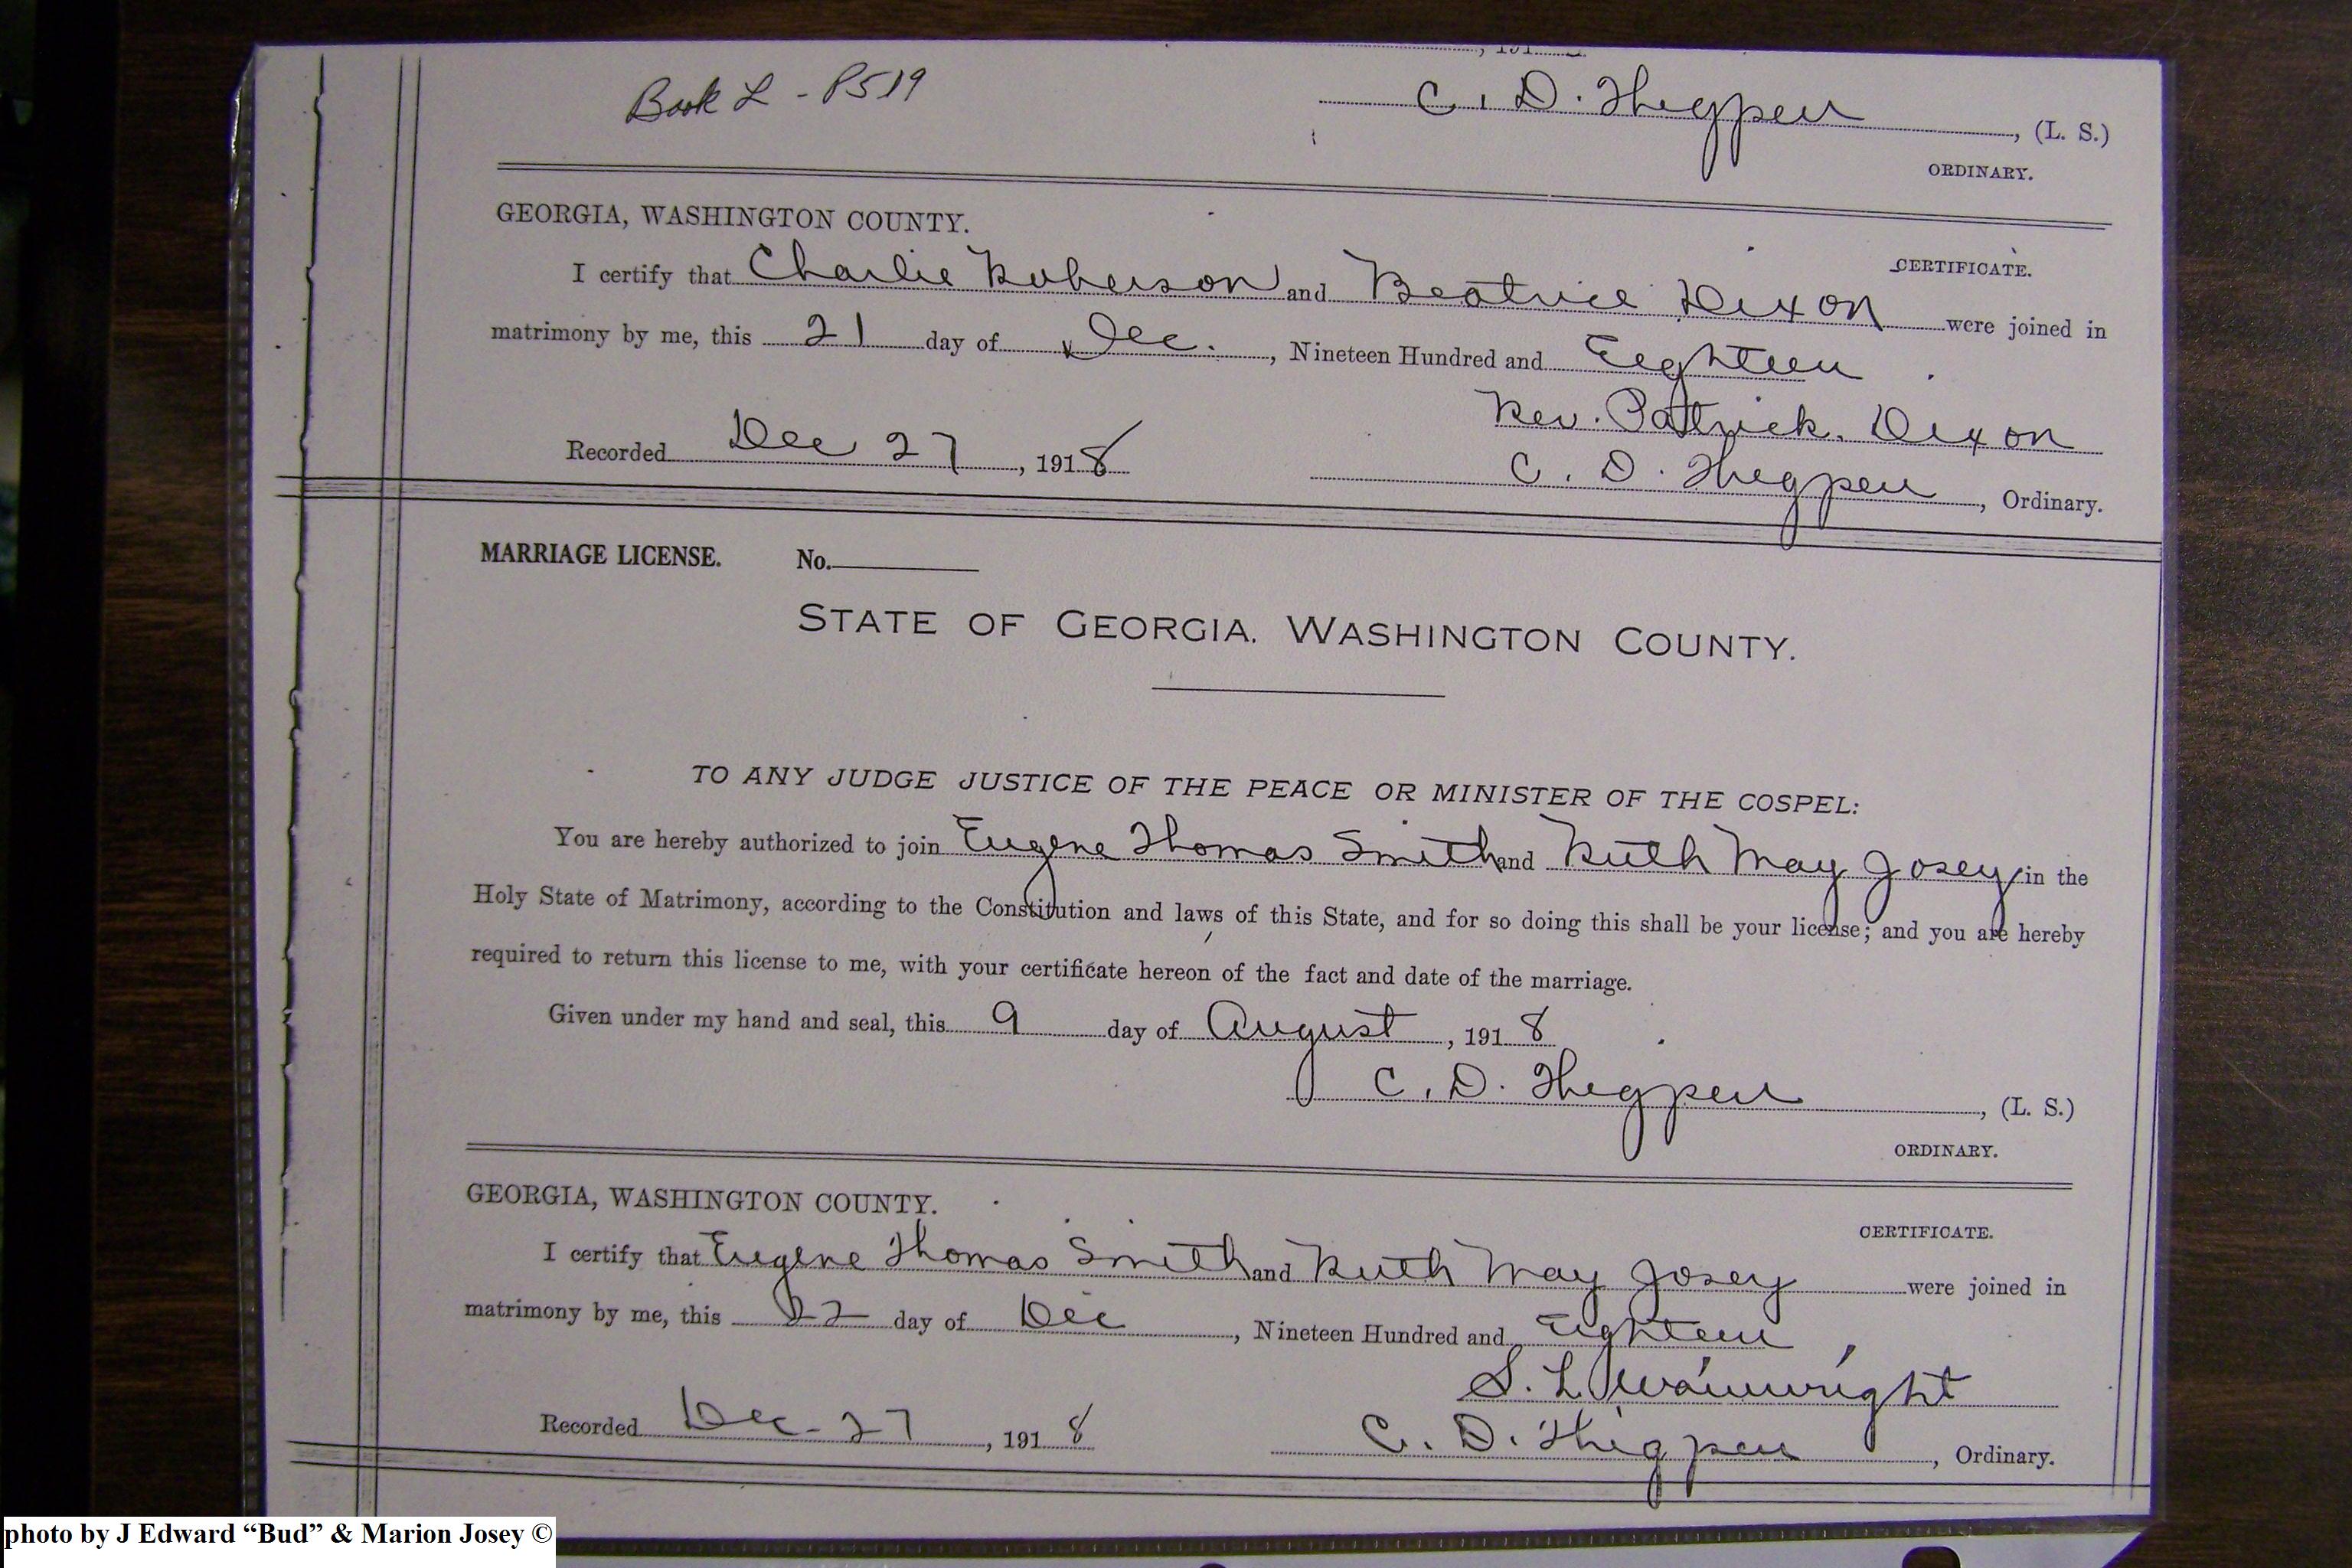 Book L - P519
, 191
C. D. Thigpen, (L. S.)
ORDINARY.
GEORGIA, WASHINGTON COUNTY.
CERTIFICATE.
I certify that Charlie Roberson and Beatrice Dixon were joined in
matrimony by me, this 21 day of Dec., Nineteen Hundred and Eighteen
Rev. Patrick. Dixon
Recorded Dec 27, 1918
C. D. Thigpen, Ordinary.
MARRIAGE LICENSE. No.
STATE OF GEORGIA. WASHINGTON COUNTY.
TO ANY JUDGE JUSTICE OF THE PEACE OR MINISTER OF THE COSPEL:
You are hereby authorized to join Eugene Thomas Smith and Ruth May Josey in the
Holy State of Matrimony, according to the Constitution and laws of this State, and for so doing this shall be your license; and you are hereby
required to return this license to me, with your certificate hereon of the fact and date of the marriage.
Given under my hand and seal, this 9 day of August, 1918
C. D. Thigpen, (L. S.)
ORDINARY.
GEORGIA, WASHINGTON COUNTY.
CERTIFICATE.
I certify that Eugene Thomas Smith and Ruth May Josey were joined in
matrimony by me, this 22 day of Dec, Nineteen Hundred and Eighteen
S. L. Wainwright
Recorded Dec - 27, 1918
C. D. Thigpen, Ordinary.
photo by J Edward “Bud” & Marion Josey ©